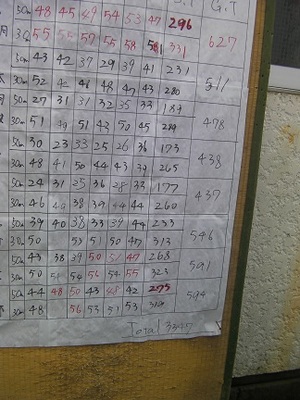 G.T
50m 48 45 49 54 53 47 296
30m 55 55 57 55 58 51 331 627
50m 43 42 37 29 39 41 231
30m 52 46 48 43 280 511
50m 27 31 31 32 35 33 189
30m 51 51 43 50 45 289 478
50m 30 23 33 25 26 36 173
30m 48 41 50 44 43 39 265 438
50m 24 31 25 36 28 33 177
30m 46 38 39 44 260 437
50m 39 40 38 33 39 44 233
30m 50 53 51 50 47 313 546
50m 43 38 39 50 51 47 268
30m 50 54 56 54 55 323 591
50m 44 48 50 43 48 42 275
30m 48 56 53 53 53 594
Total